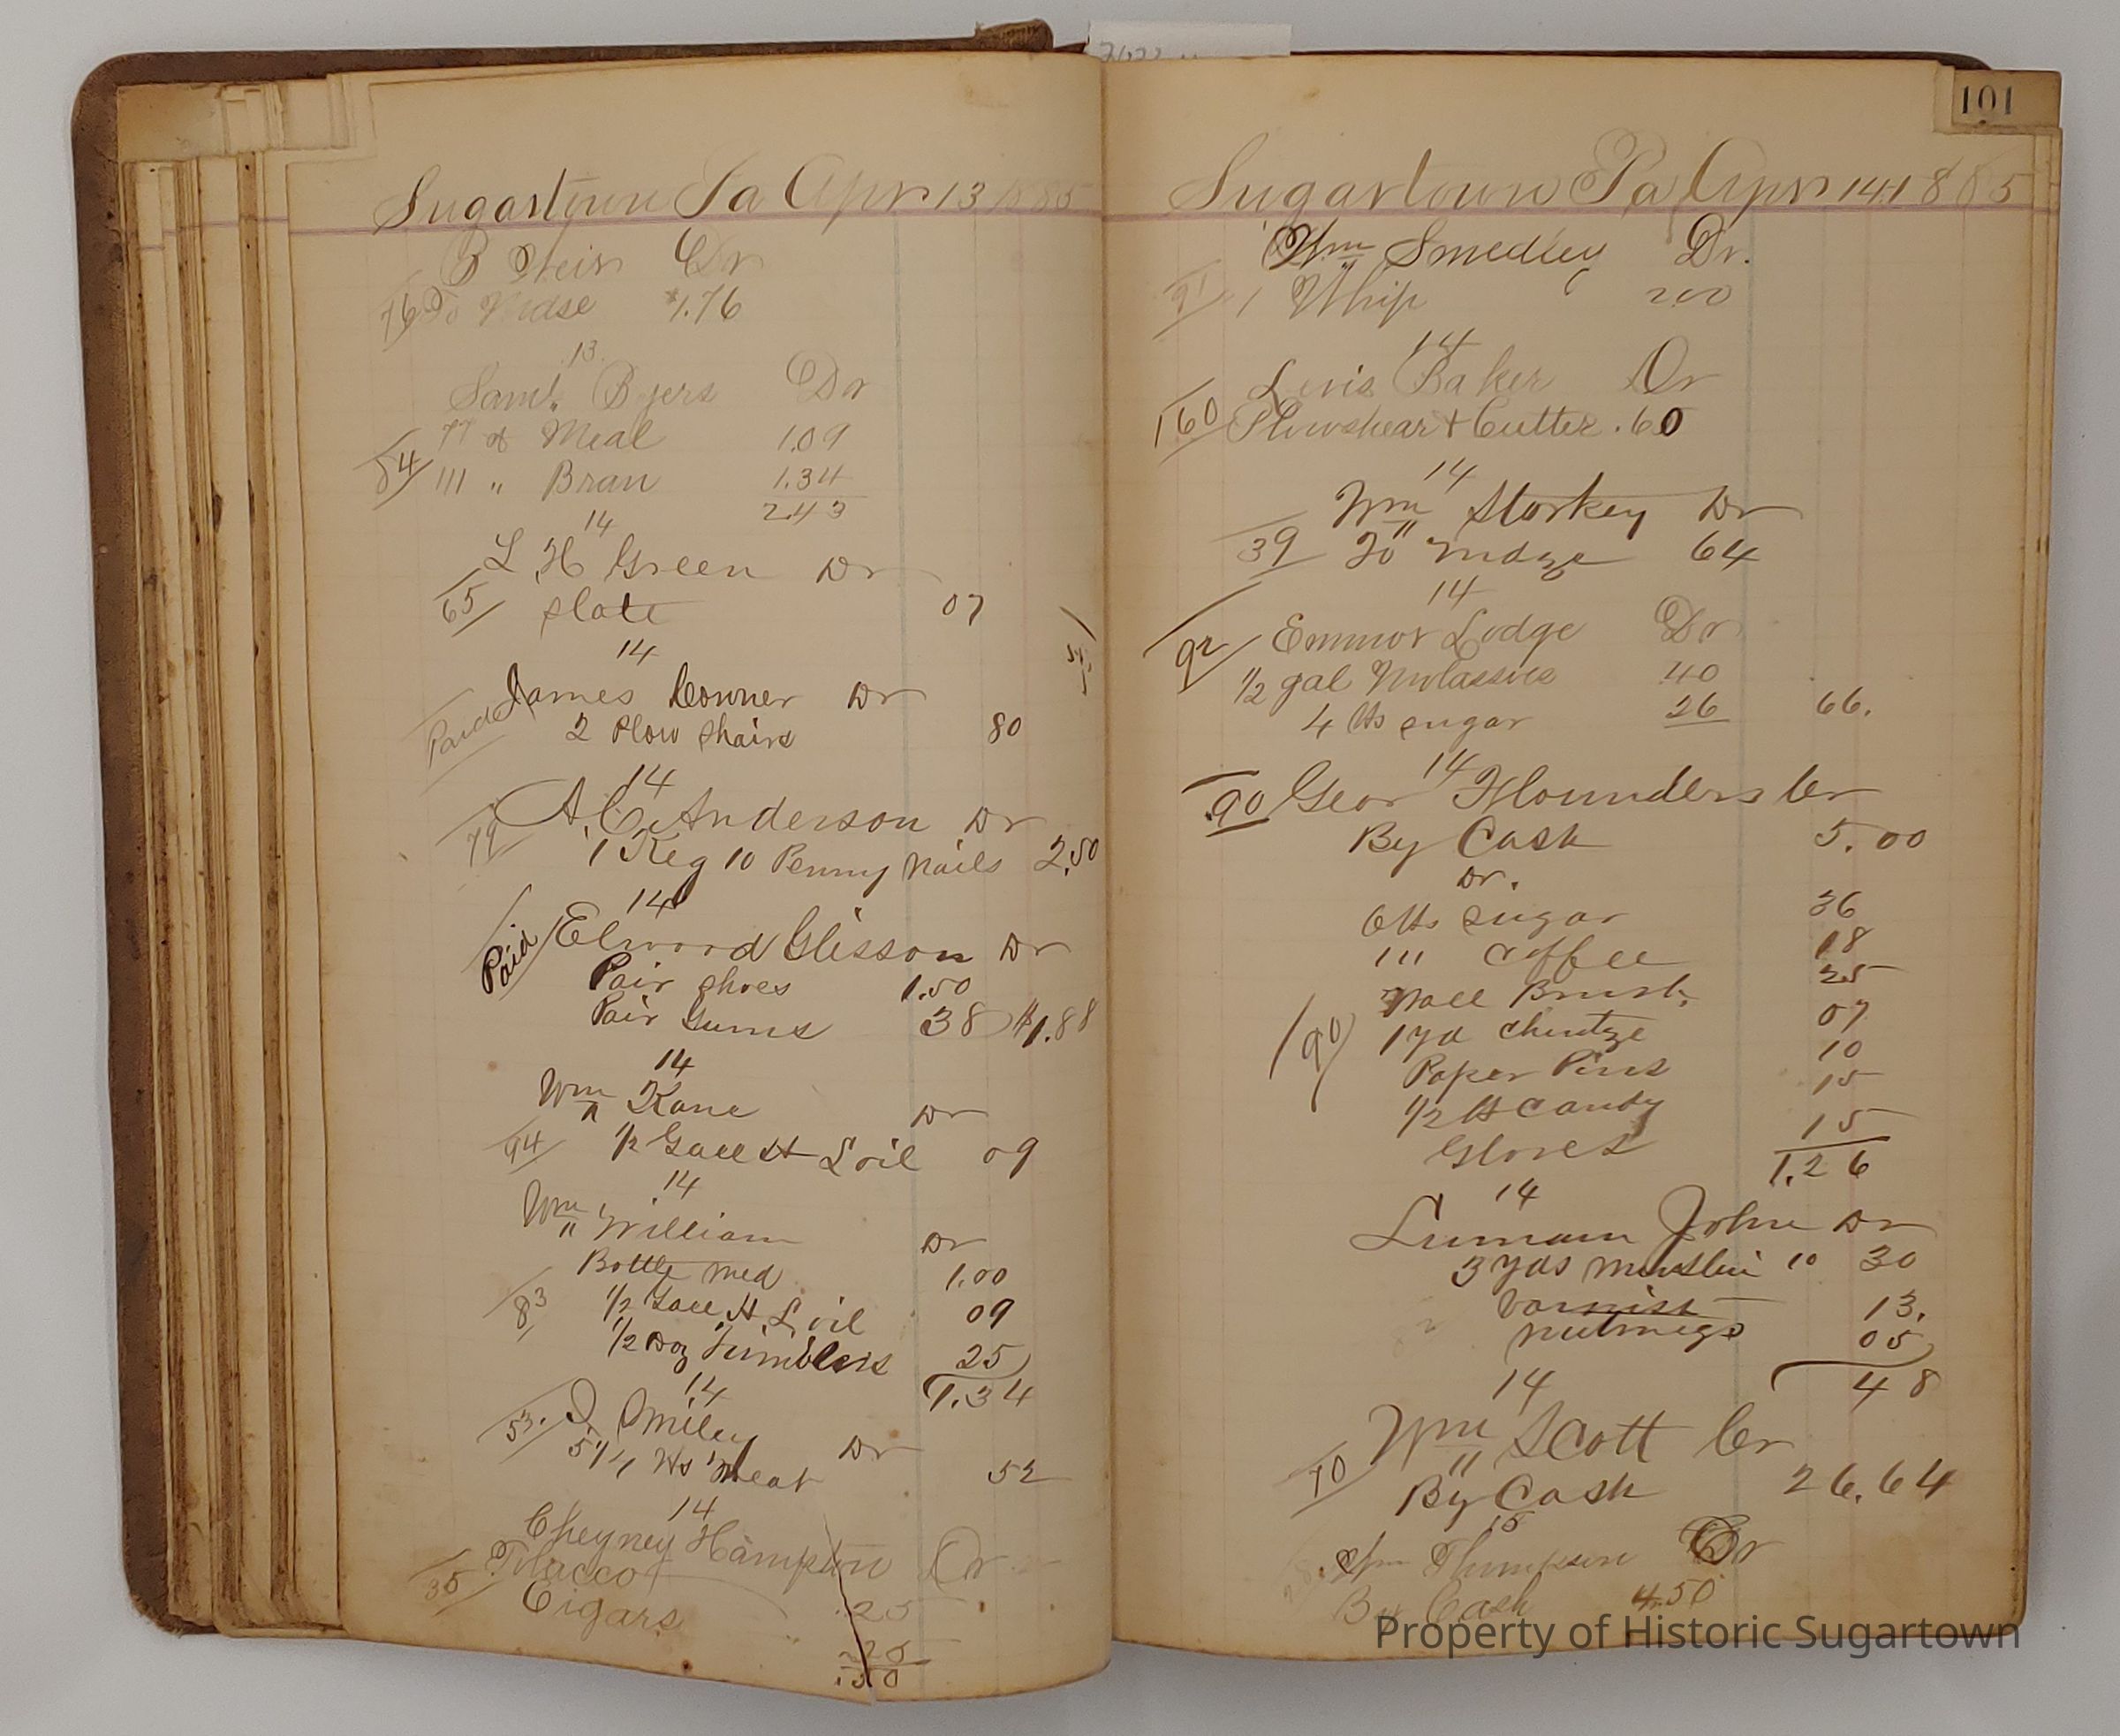 Sugartown Pa Apr 13 1885
B Weir Dr
76 To Mdse $1.76
13
Saml. Byers Dr
77 # Meal 1.09
54 111 " Bran 1.34
2.43
14
L H Green Dr
65 slate 07
14
James Downer Dr
Paid 2 Plow Shairs 80
14
79 A. C. Anderson Dr
1 Keg 10 Penny Nails 2.50
14
Paid Elwood Glisson Dr
Pair shoes 1.50
Pair Gums 38 $1.88
14
Wm Kane Dr
94 1/2 Gall H L oil 09
14
Wm William Dr
Bottle med 1.00
83 1/2 Gall H. L oil 09
1/2 Doz Tumblers 25
1.34
14
53. J. Smiley Dr
5 1/4 lbs Meat 52
14
Cheyney Hampton Dr
35 Tobacco
Cigars .25
.25
.50
101
Sugartown Pa Apr 14 1885
Wm Smedley Dr.
91 1 Whip 2.00
14
Levis Baker Dr
160 Plowshear + Cutter .60
14
Wm Storkey Dr
39 To mdze 64
14
92 Emmor Lodge Dr
1/2 gal Molasses 40
4 lbs sugar 26 66.
14
90 Geor Flounders Cr
By Cash 5.00
Dr.
6 lbs sugar 36
1 " coffee 18
Wall Brush 25
90 1 yd chintze 07
Paper Pins 10
1/2 lb Candy 15
Gloves 15
1.26
14
Lumam John Dr
3 yds Muslin 10 30
Varnish 13.
nutmegs 05
48
14
Wm Scott Cr
70 By Cash 26.64
15
Wm Thompson Cr
By Cash 4.50
Property of Historic Sugartown